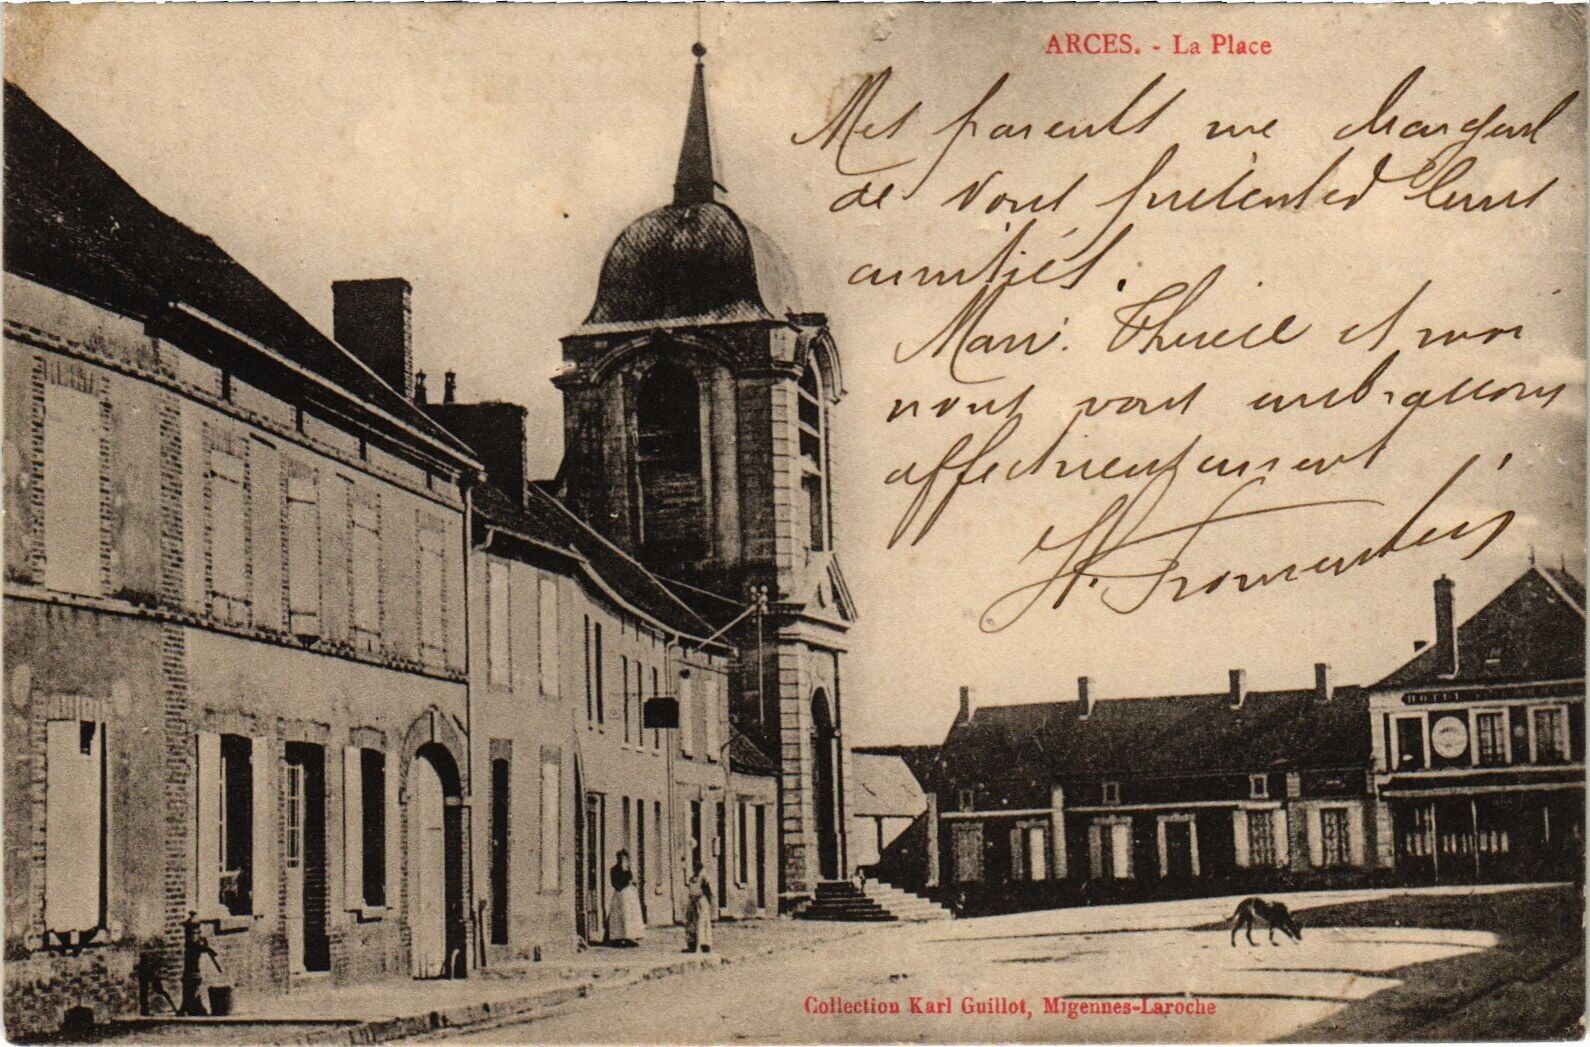 ARCES. - La Place
Mes parents me chargent
de vous présenter leurs
amitiés.
et moi
nous vous embrassons
affectueusement
HOTEL
Collection Karl Guillot, Migennes-Laroche